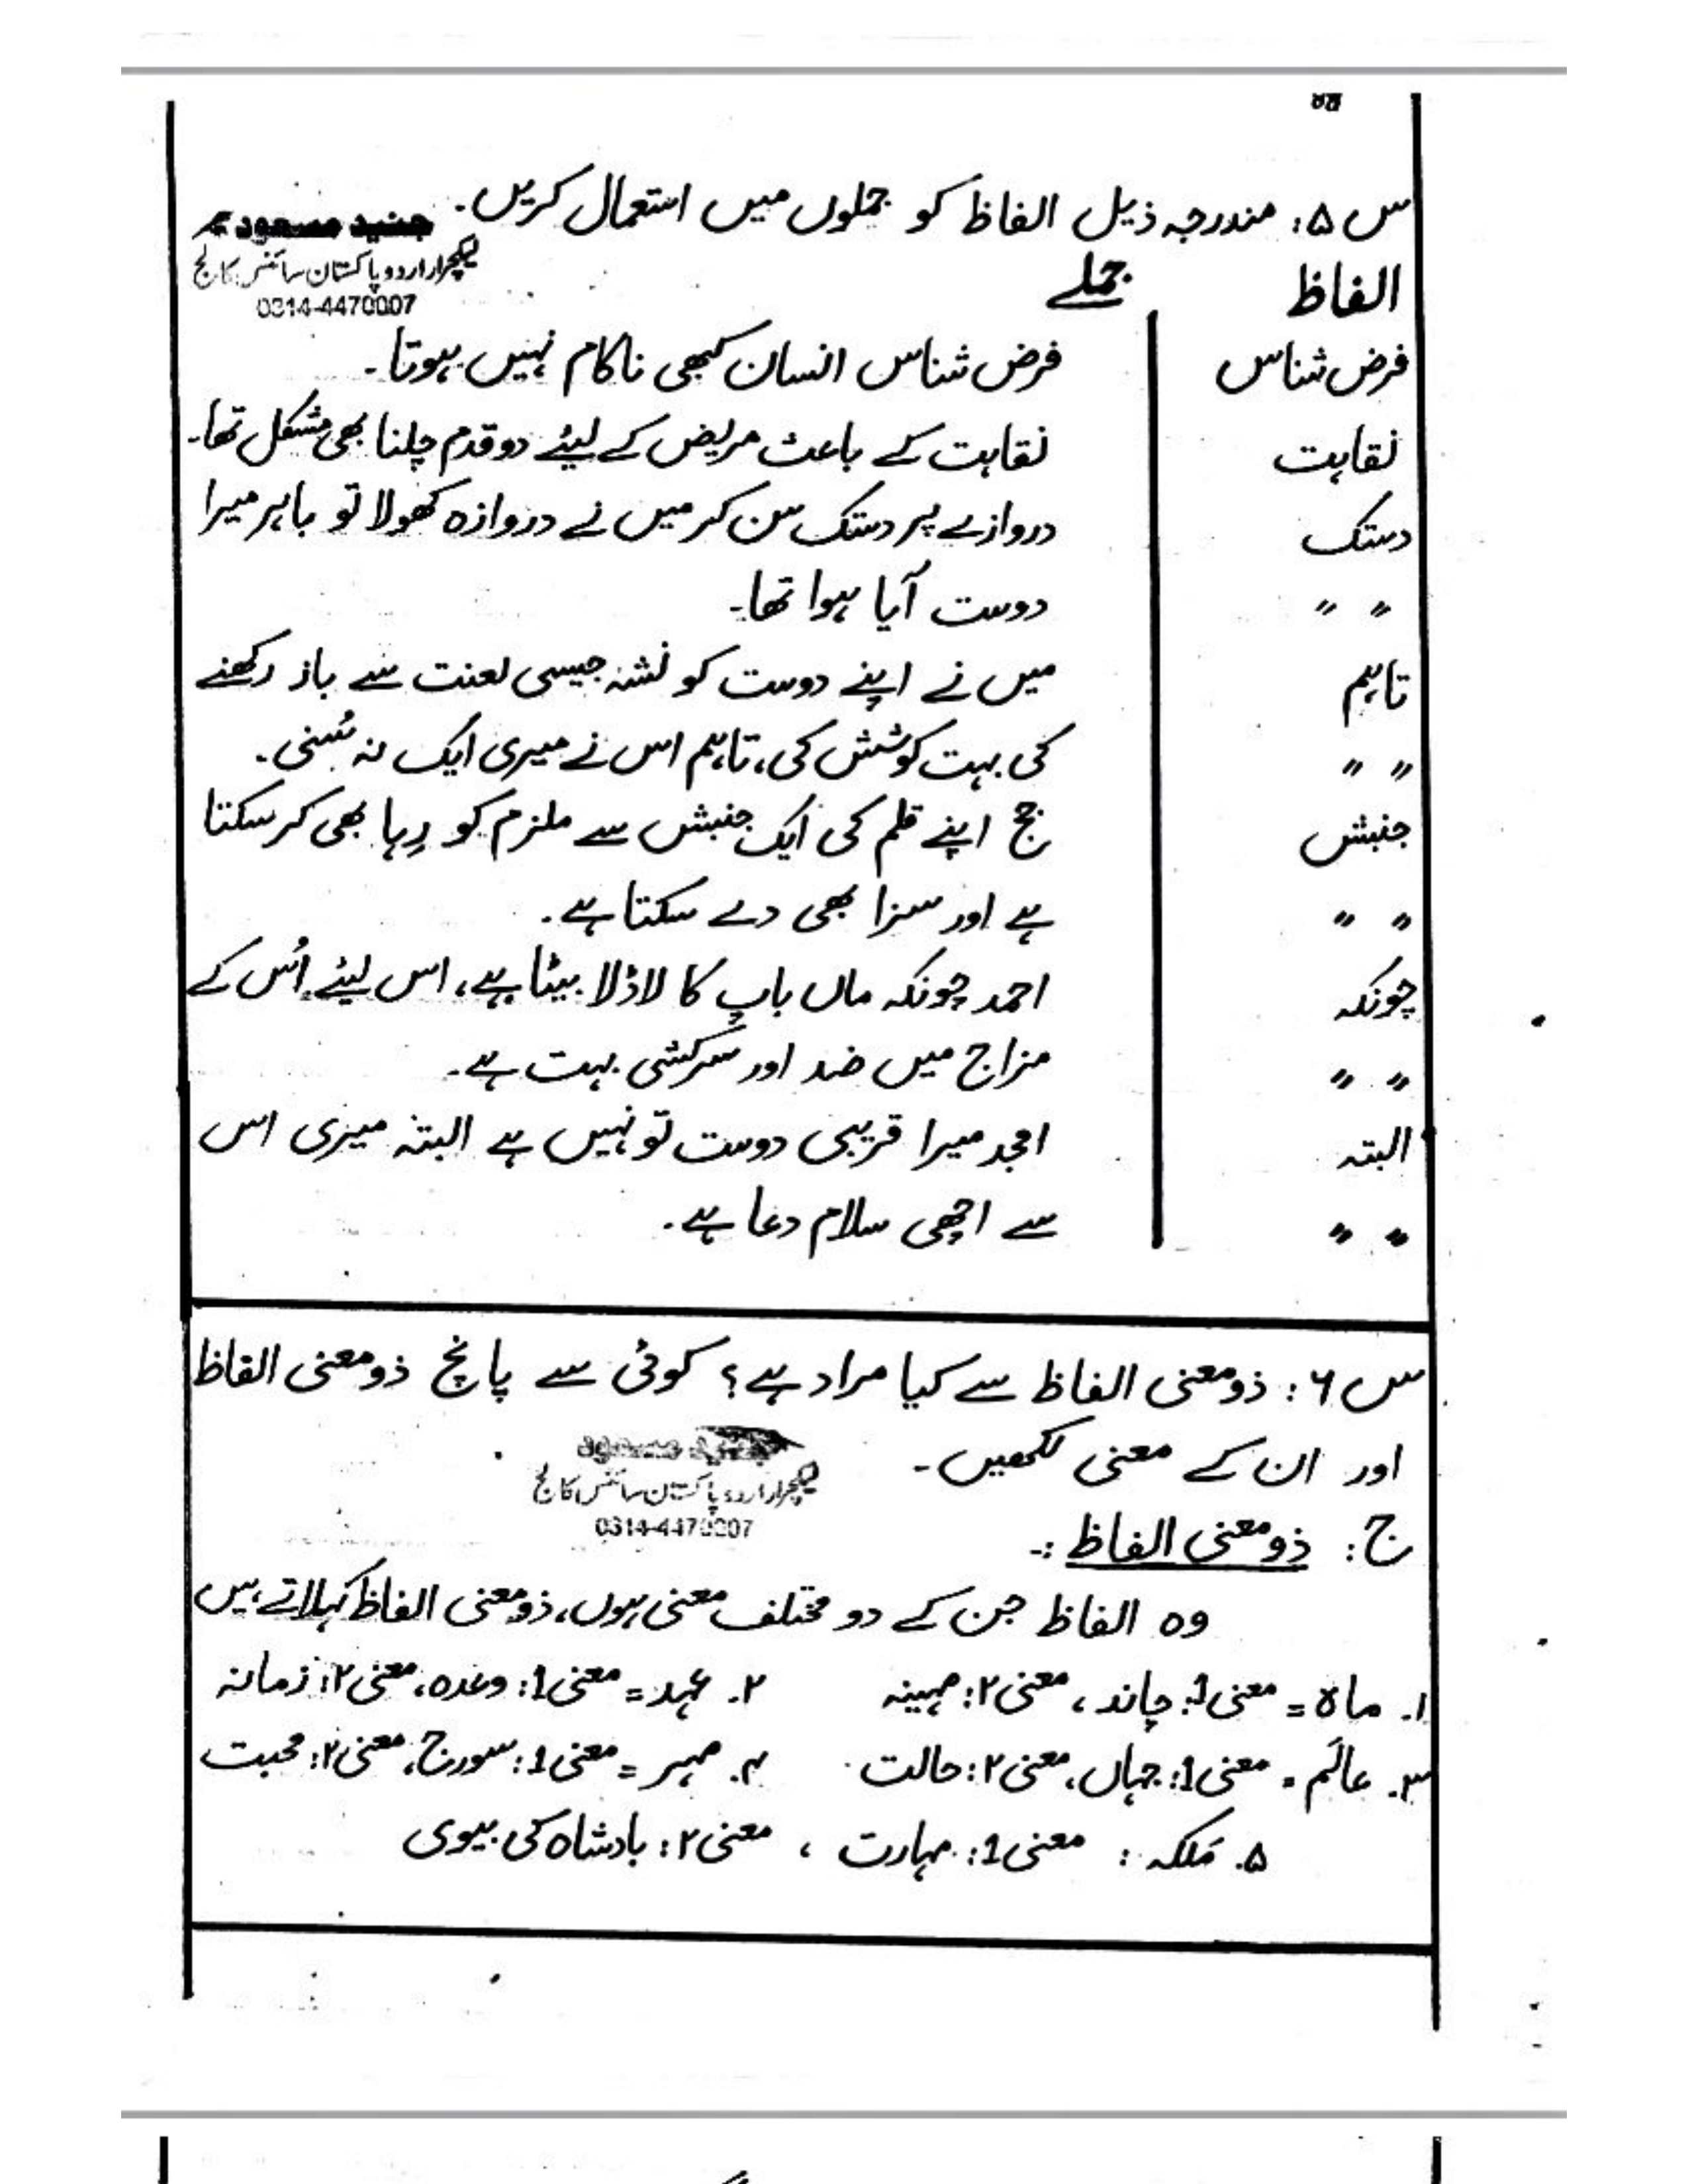 س ۵: مندرجہ ذیل الفاظ کو جملوں میں استعمال کریں۔
جنید مسعود
لیکچرار اردو پاکستان سائنس کالج
0314-4470007
الفاظ جملے
فرض شناس فرض شناس انسان کبھی ناکام نہیں ہوتا۔
نقاہت نقاہت کے باعث مریض کے لیئے دو قدم چلنا بھی مشکل تھا۔
دستک دروازے پر دستک سن کر میں نے دروازہ کھولا تو باہر میرا
〃 〃 دوست آیا ہوا تھا۔
تاہم میں نے اپنے دوست کو نشہ جیسی لعنت سے باز رکھنے
〃 〃 کی بہت کوشش کی، تاہم اس نے میری ایک نہ سُنی۔
جنبش جج اپنے قلم کی ایک جنبش سے ملزم کو رِہا بھی کر سکتا
〃 〃 ہے اور سزا بھی دے سکتا ہے۔
چونکہ احمد چونکہ ماں باپ کا لاڈلا بیٹا ہے، اس لیئے اُس کے
〃 〃 مزاج میں ضد اور سرکشی بہت ہے۔
البتہ امجد میرا قریبی دوست تو نہیں ہے البتہ میری اس
〃 〃 سے اچھی سلام دعا ہے۔
س ۶: ذومعنی الفاظ سے کیا مراد ہے؟ کوئی سے پانچ ذومعنی الفاظ
اور ان کے معنی لکھیں۔
لیکچرار اردو پاکستان سائنس کالج
0314-4470007
ج: ذومعنی الفاظ :۔
وہ الفاظ جن کے دو مختلف معنی ہوں، ذومعنی الفاظ کہلاتے ہیں
۱. ماہ = معنی 1: چاند، معنی ۲: مہینہ ۲. عہد = معنی 1: وعدہ، معنی ۲: زمانہ
۳. عالَم = معنی 1: جہاں، معنی ۲: حالت ۴. مہر = معنی 1: سورج، معنی ۲: محبت
۵. مَلکہ: معنی 1: مہارت، معنی ۲: بادشاہ کی بیوی